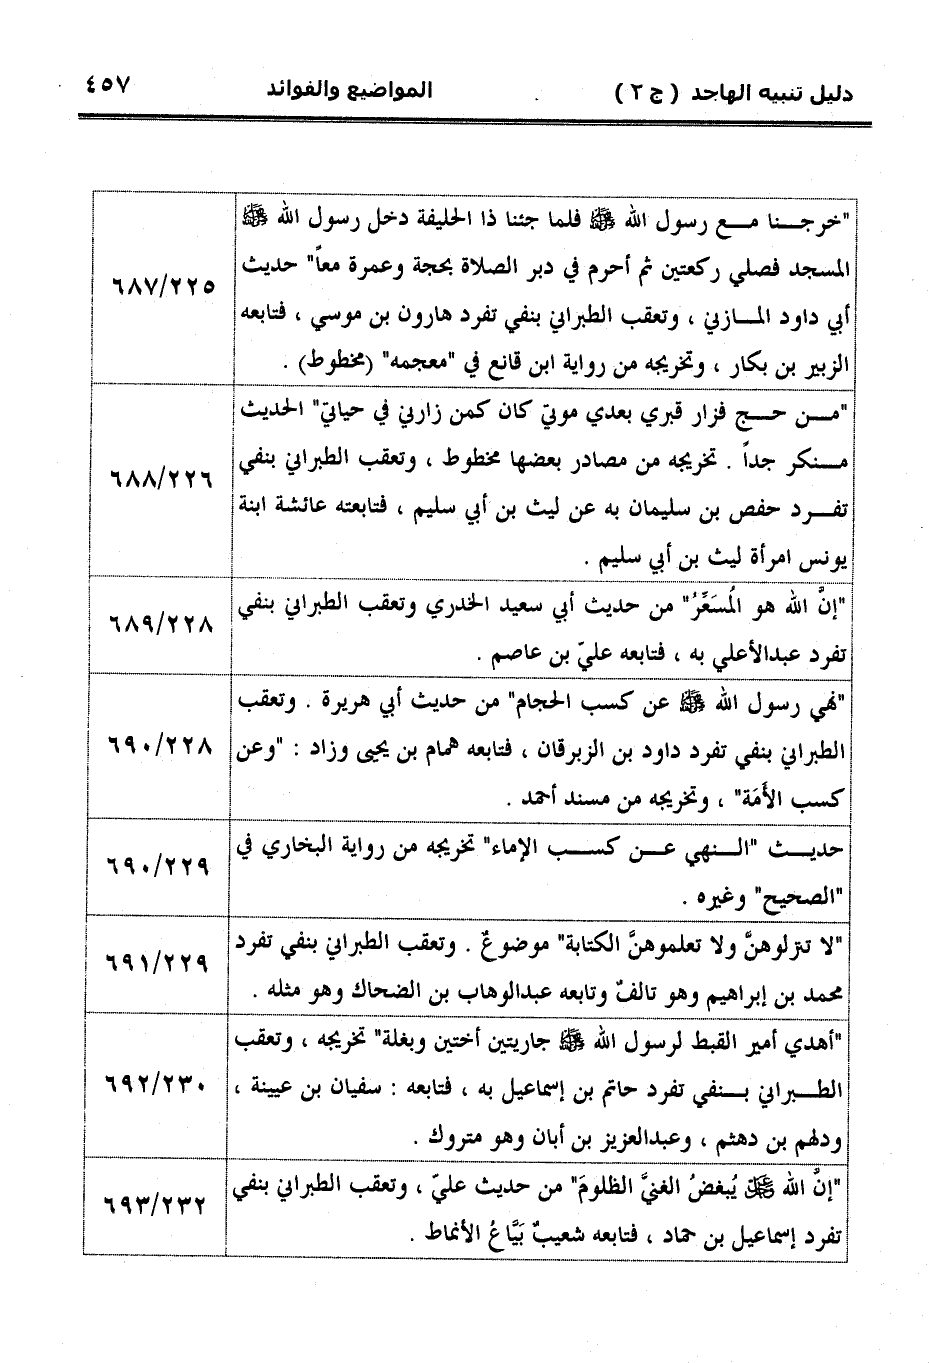 دليل تنبيه الهاجد ( ج ٢ ) المواضيع والفوائد ٤٥٧
"خرجـــنا مـــع رسول الله ﷺ فلما جئنا ذا الحليفة دخل رسول الله ﷺ
المسجد فصلي ركعتين ثم أحرم في دبر الصلاة بحجة وعمرة معاً" حديث
أبي داود المــازني ، وتعقب الطبراني بنفي تفرد هارون بن موسي ، فتابعه
الزبير بن بكار ، وتخريجه من رواية ابن قانع في "معجمه" (مخطوط) .
٦٨٧/٢٢٥
"مـــن حـــج فزار قبري بعدي موتي كان كمن زارني في حياتي" الحديث
مـــنكر جداً . تخريجه من مصادر بعضها مخطوط ، وتعقب الطبراني بنفي
تفـــرد حفص بن سليمان به عن ليث بن أبي سليم ، فتابعته عائشة ابنة
يونس امرأة ليث بن أبي سليم .
٦٨٨/٢٢٦
"إنَّ الله هو المُسَعِّرُ" من حديث أبي سعيد الخدري وتعقب الطبراني بنفي
تفرد عبدالأعلي به ، فتابعه عليّ بن عاصم .
٦٨٩/٢٢٨
"نهي رسول الله ﷺ عن كسب الحجام" من حديث أبي هريرة . وتعقب
الطبراني بنفي تفرد داود بن الزبرقان ، فتابعه همام بن يحيى وزاد : "وعن
كسب الأَمَة" ، وتخريجه من مسند أحمد .
٦٩٠/٢٢٨
حديـــث "الـــنهي عـــن كســـب الإماء" تخريجه من رواية البخاري في
"الصحيح" وغيره .
٦٩٠/٢٢٩
"لا تنزلوهنَّ ولا تعلموهنَّ الكتابة" موضوعٌ . وتعقب الطبراني بنفي تفرد
محمد بن إبراهيم وهو تالفٌ وتابعه عبدالوهاب بن الضحاك وهو مثله .
٦٩١/٢٢٩
"أهدي أمير القبط لرسول الله ﷺ جاريتين أختين وبغلة" تخريجه ، وتعقب
الطـــبراني بـــنفي تفرد حاتم بن إسماعيل به ، فتابعه : سفيان بن عيينة ،
ودلهم بن دهثم ، وعبدالعزيز بن أبان وهو متروك .
٦٩٢/٢٣٠
"إنَّ الله ﷻ يُبغضُ الغنيَّ الظلومَ" من حديث عليّ ، وتعقب الطبراني بنفي
تفرد إسماعيل بن حماد ، فتابعه شعيبٌ بَيَّاعُ الأنماط .
٦٩٣/٢٣٢